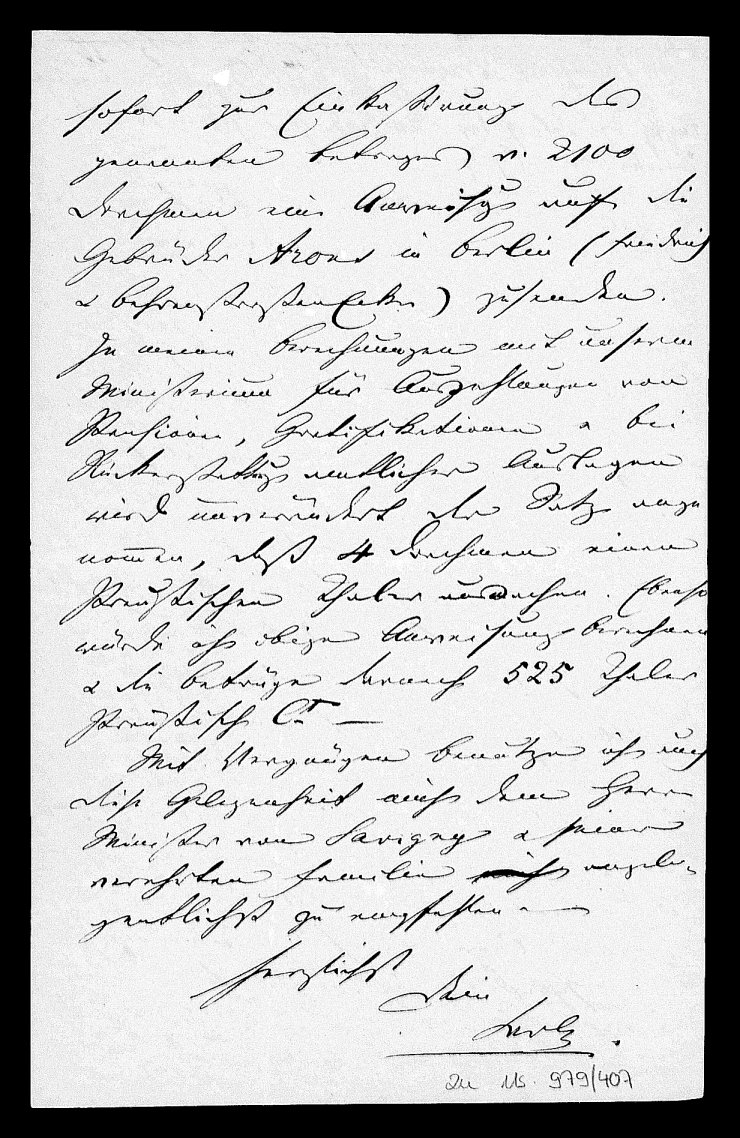 sofort zur Einkassirung des
genannten Betrages v. 2100
Drachmen eine Anweisung auf die
Gebrüder Arons in Berlin (Friedrich
& Behrenstrassen Ecke) zusenden.
In meinen Berechnungen mit unserm
Ministerium für Auszahlungen von
Pensionen, Gratifikationen & bei
Rückerstattung amtlicher Auslagen
wird unverändert der Satz ange
nommen, daß 4 Drachmen einen
Preußischen Thaler ausmachen. Ebenso
würde ich obige Anweisung berechnen
& die betrüge darnach 525 Thaler
Preußisch Ct —
Mit Vergnügen benütze ich auch
diese Gelegenheit mich dem Herrn
Minister von Savigny & seiner
verehrten Familie angele-
gentlichst zu empfehlen. —
Herzlichst
Dein
zu Ms. 979/407